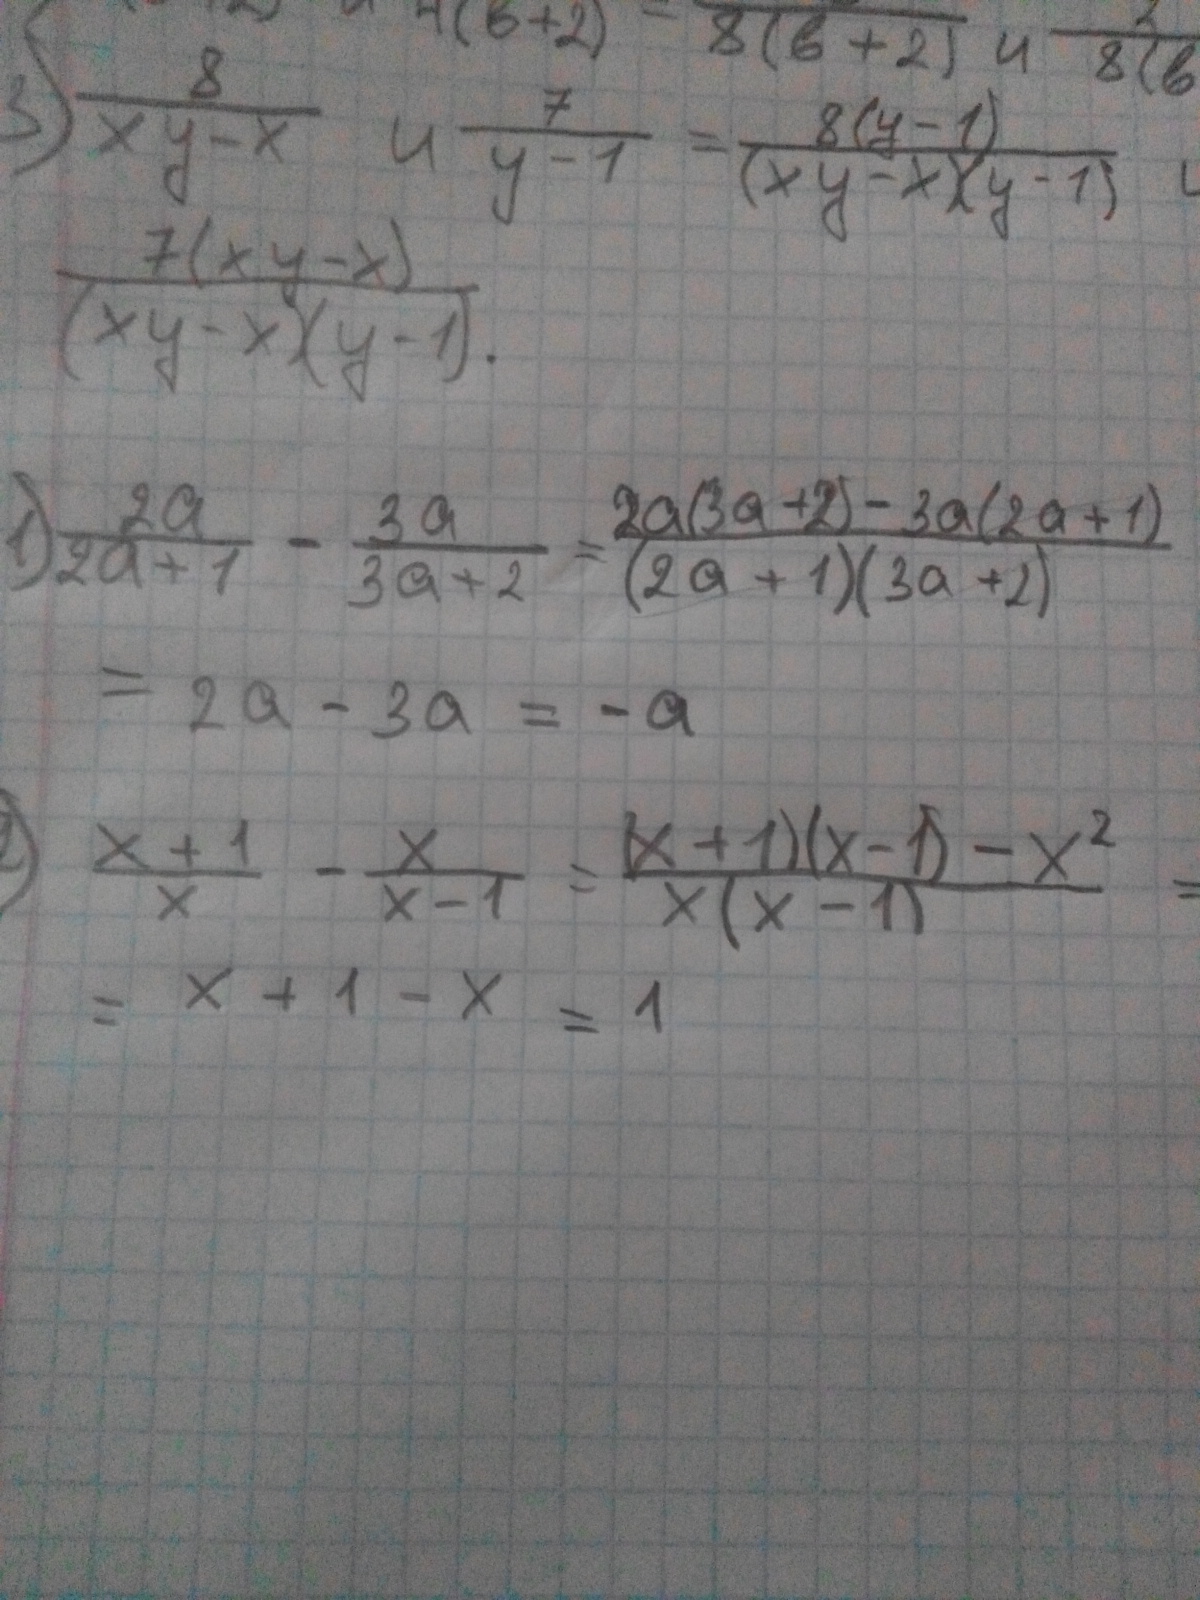 4(в+2) = 8(в+2) и 2/8(в
3) 8/(xy-x) и 7/(y-1) = 8(y-1)/((xy-x)(y-1)) и
7(xy-x)/((xy-x)(y-1)).
1) 2a/(2a+1) - 3a/(3a+2) = (2a(3a+2)-3a(2a+1))/((2a+1)(3a+2))
= 2a - 3a = -a
2) (x+1)/x - x/(x-1) = ((x+1)(x-1)-x²)/(x(x-1)) =
= x + 1 - x = 1